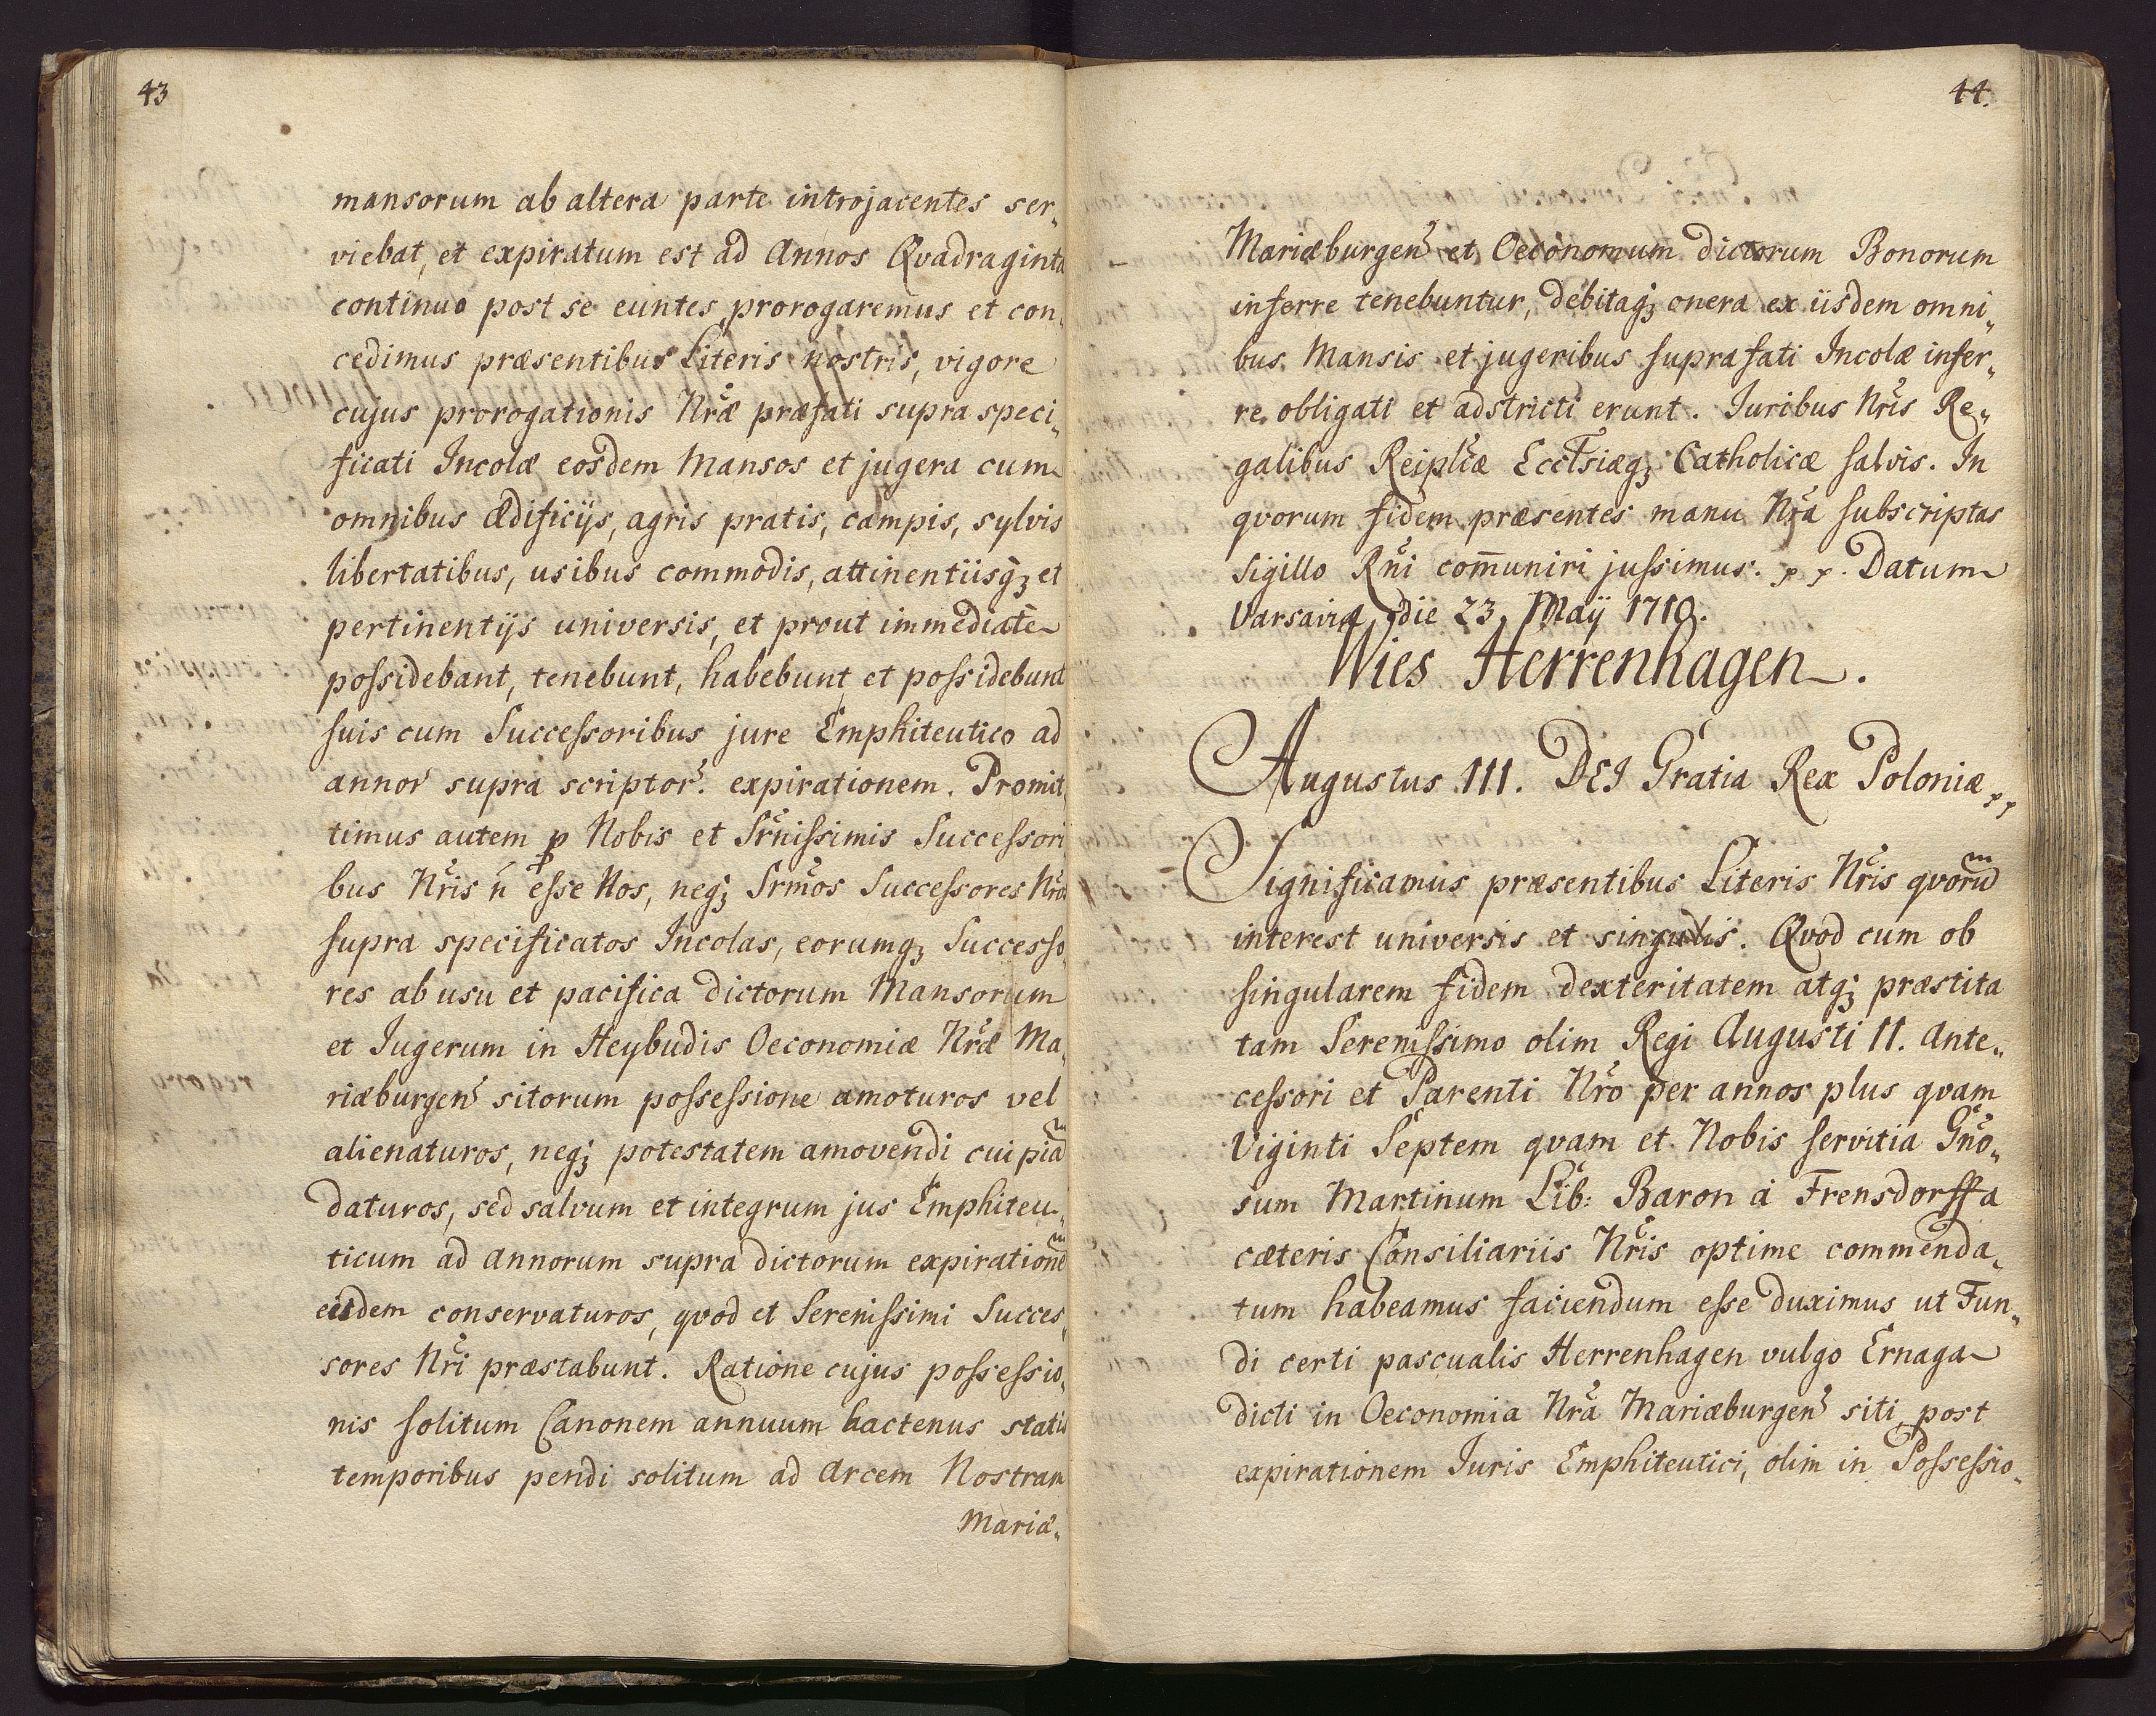 43
mansorum ab altera parte introjacentes ser„
viebat, et expiratum est ad Annos Qvadraginta
continuo post se euntes, prorogaremus et con„
cedimus præsentibus Literis nostris, vigore
cujus prorogationis Nr̃æ præfati supra speci„
ficati Incolæ eosdem Mansos et jugera cum
omnibus ædificijs, agris pratis, campis, sylvis
libertatibus, usibus commodis, attinentiisq̀ʒ et
pertinentijs universis, et prout immediate
possidebant, tenebunt, habebunt et possidebunt
suis cum Successoribus jure Emphiteutico ad
annor̃ supra scriptor̃. expirationem. Promit„
timus autem ꝓ Nobis et Sr̃nissimis Successori
bus Nr̃is ń esse Nos, neqʒ Srm̃os Successores Nr̃os
supra specificatos Incolas, eorumqʒ Successo„
res ab usu et pacifica dictorum Mansorum
et Iugerum in Heybudis Oeconomiæ Nr̃æ Ma„
riæburgen̉ sitorum possessione amoturos vel
alienaturos, neqʒ potestatem amovendi cuipiam
daturos, sed salvum et integrum jus Emphiteu„
ticum ad Annorum supra dictorum expirationem
eisdem conservaturos, qvod et Serenissimi Succes„
sores Nr̃i præstabunt. Ratione cujus possessio„
nis solitum Canonem annuum hactenus statis
temporibus pendi solitum ad Arcem Nostram
Mariæ„
44.
Mariæburgen̉ et Oeconomum dictorum Bonorum
inferre tenebuntur, debitaqʒ onera ex iisdem omni„
bus Mansis et jugeribus suprafati Incolæ infer„
re obligati et adstricti erunt. Iuribus Nr̃is Re„
galibus Reipl̃cæ Eccl̃siæqʒ Catholicæ salvis. In
qvorum fidem præsentes manu Nr̃a subscriptas
Sigillo Rñi com̃uniri jussimus. pp. Datum
Varsaviæ, die 23. Maÿ 1710.
Wies Herrenhagen.
Augustus III. DEI Gratia Rex Poloniæ pp
Significamus præsentibus Literis Nr̃is qvorum
interest universis et singulis. Qvod cum ob
singularem fidem dexteritatem atqʒ præstita
tam Serenissimo olim Regi Augusti II. Ante„
cessori et Parenti Nr̃o per annos plus qvam
Viginti Septem qvam et Nobis servitia Gño„
sum Martinum Lib: Baron á Frensdorff a
cæteris Consiliariis Nr̃is optime commenda„
tum habeamus faciendum esse duximus ut Fun„
di certi pascualis Herrenhagen vulgo Ernaga
dicti in Oeconomia Nr̃a Mariæburgen̉ siti, post
expirationem Iuris Emphiteutici, olim in Possessio„